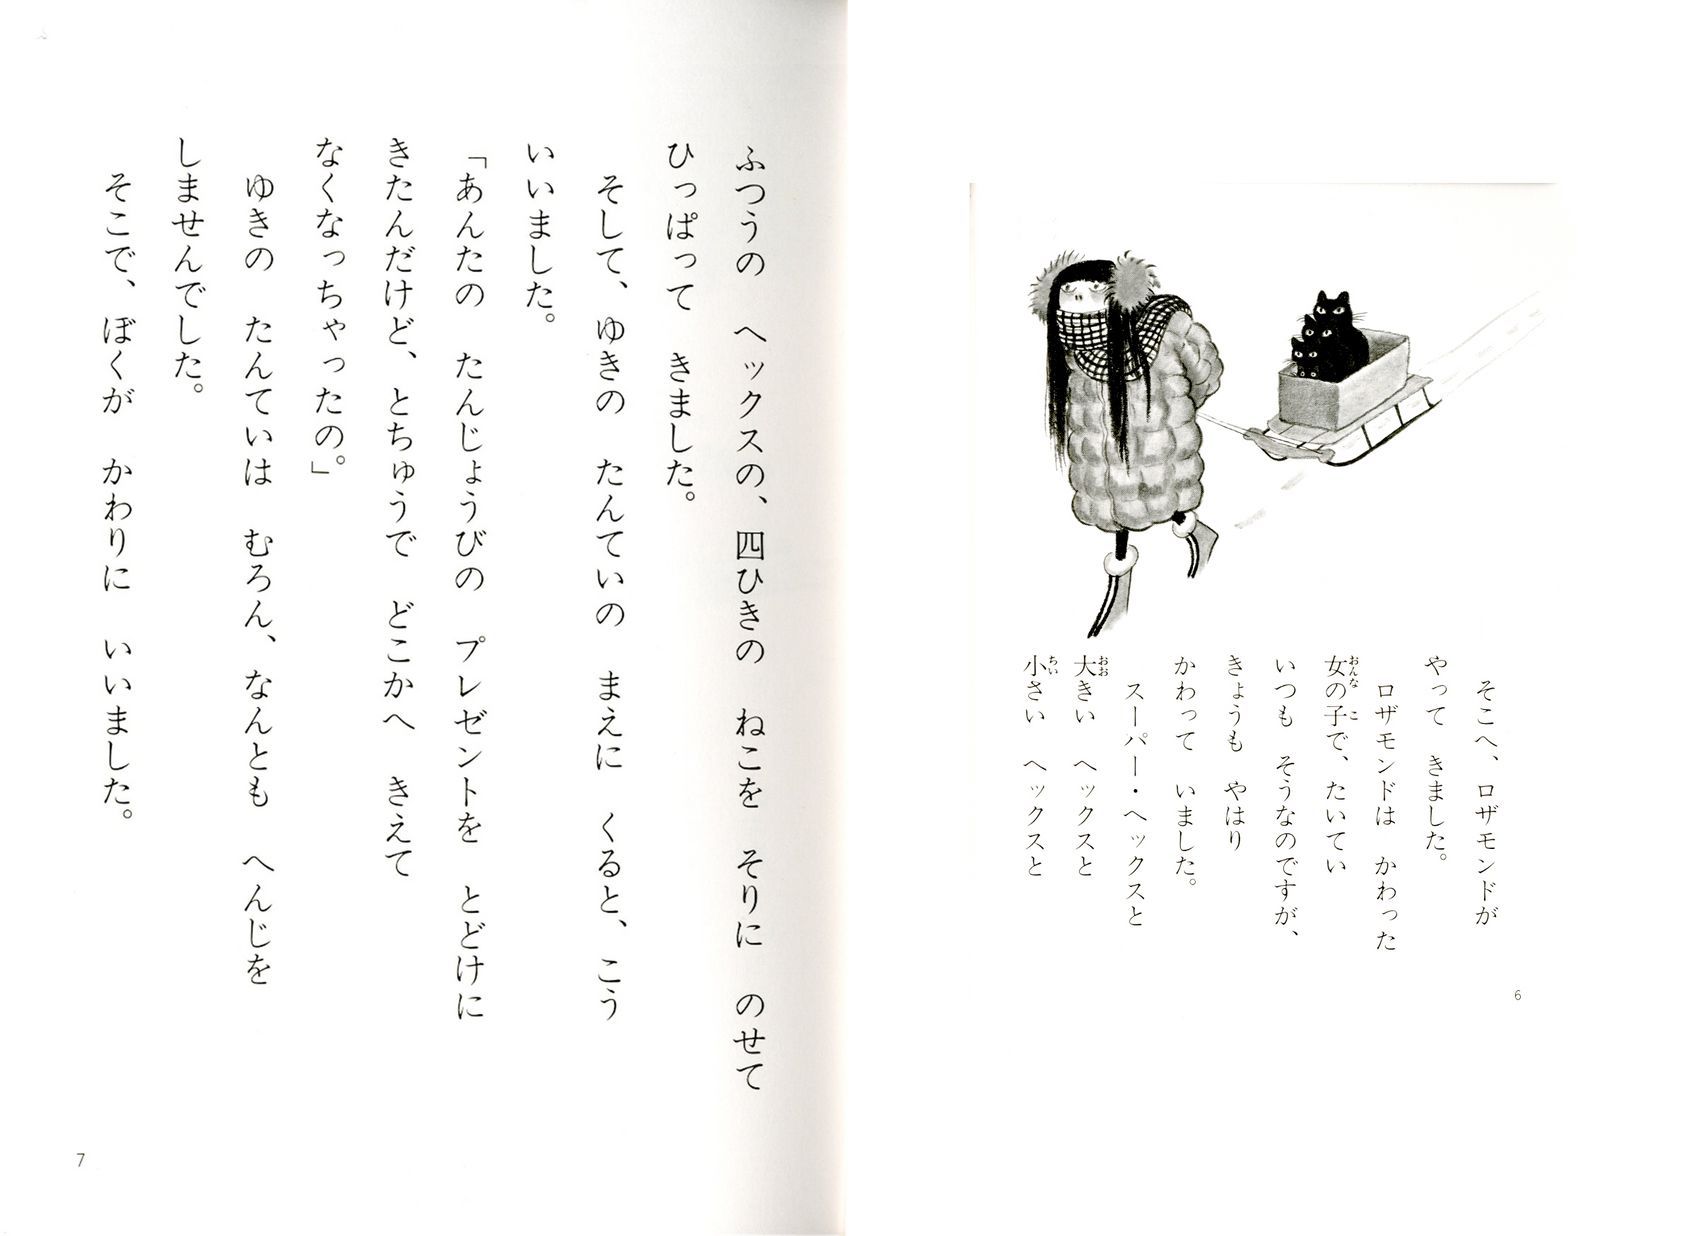 そこへ、ロザモンドが
やって きました。
ロザモンドは かわった
女の子で、たいてい
いつも そうなのですが、
きょうも やはり
かわって いました。
スーパー・ヘックスと
大きい ヘックスと
小さい ヘックスと
おんな
こ
おお
ちい
6
ふつうの ヘックスの、四ひきの ねこを そりに のせて
ひっぱって きました。
そして、ゆきの たんていの まえに くると、こう
いいました。
「あんたの たんじょうびの プレゼントを とどけに
きたんだけど、とちゅうで どこかへ きえて
なくなっちゃったの。」
ゆきの たんていは むろん、なんとも へんじを
しませんでした。
そこで、ぼくが かわりに いいました。
7